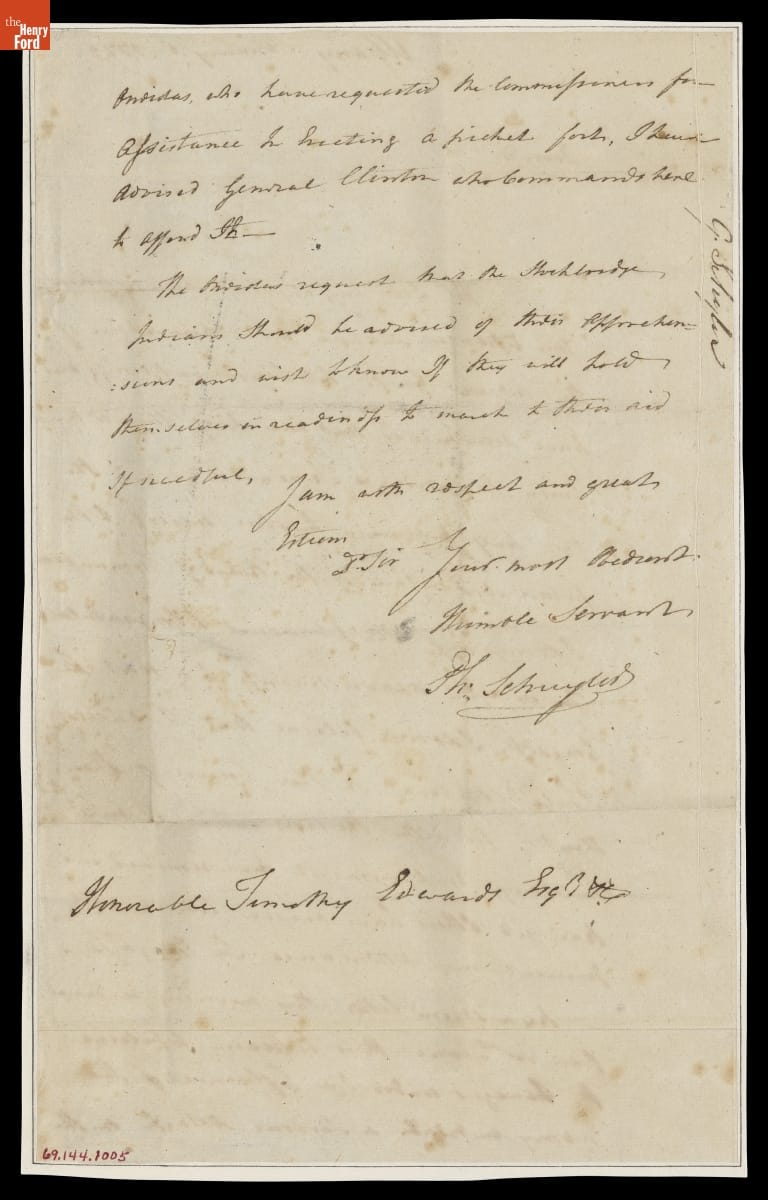 the
Henry
Ford
Oneidas, who have requested the Commissioners for
Assistance In Erecting a picket fort, I have
advised General Clinton who Commands here
to afford It—
The Oneidas request that the Stockbridge
Indians should be advised of their Apprehen-
:sions and wish to know If they will hold
themselves in readiness to march to their aid
If needful,
I am with respect and great
Esteem
Dr. Sir
Your most Obedient
Humble Servant
Ph: Schuyler
G. Schuyler
Honorable Timothy Edwards Esqr &c
69.144.1005